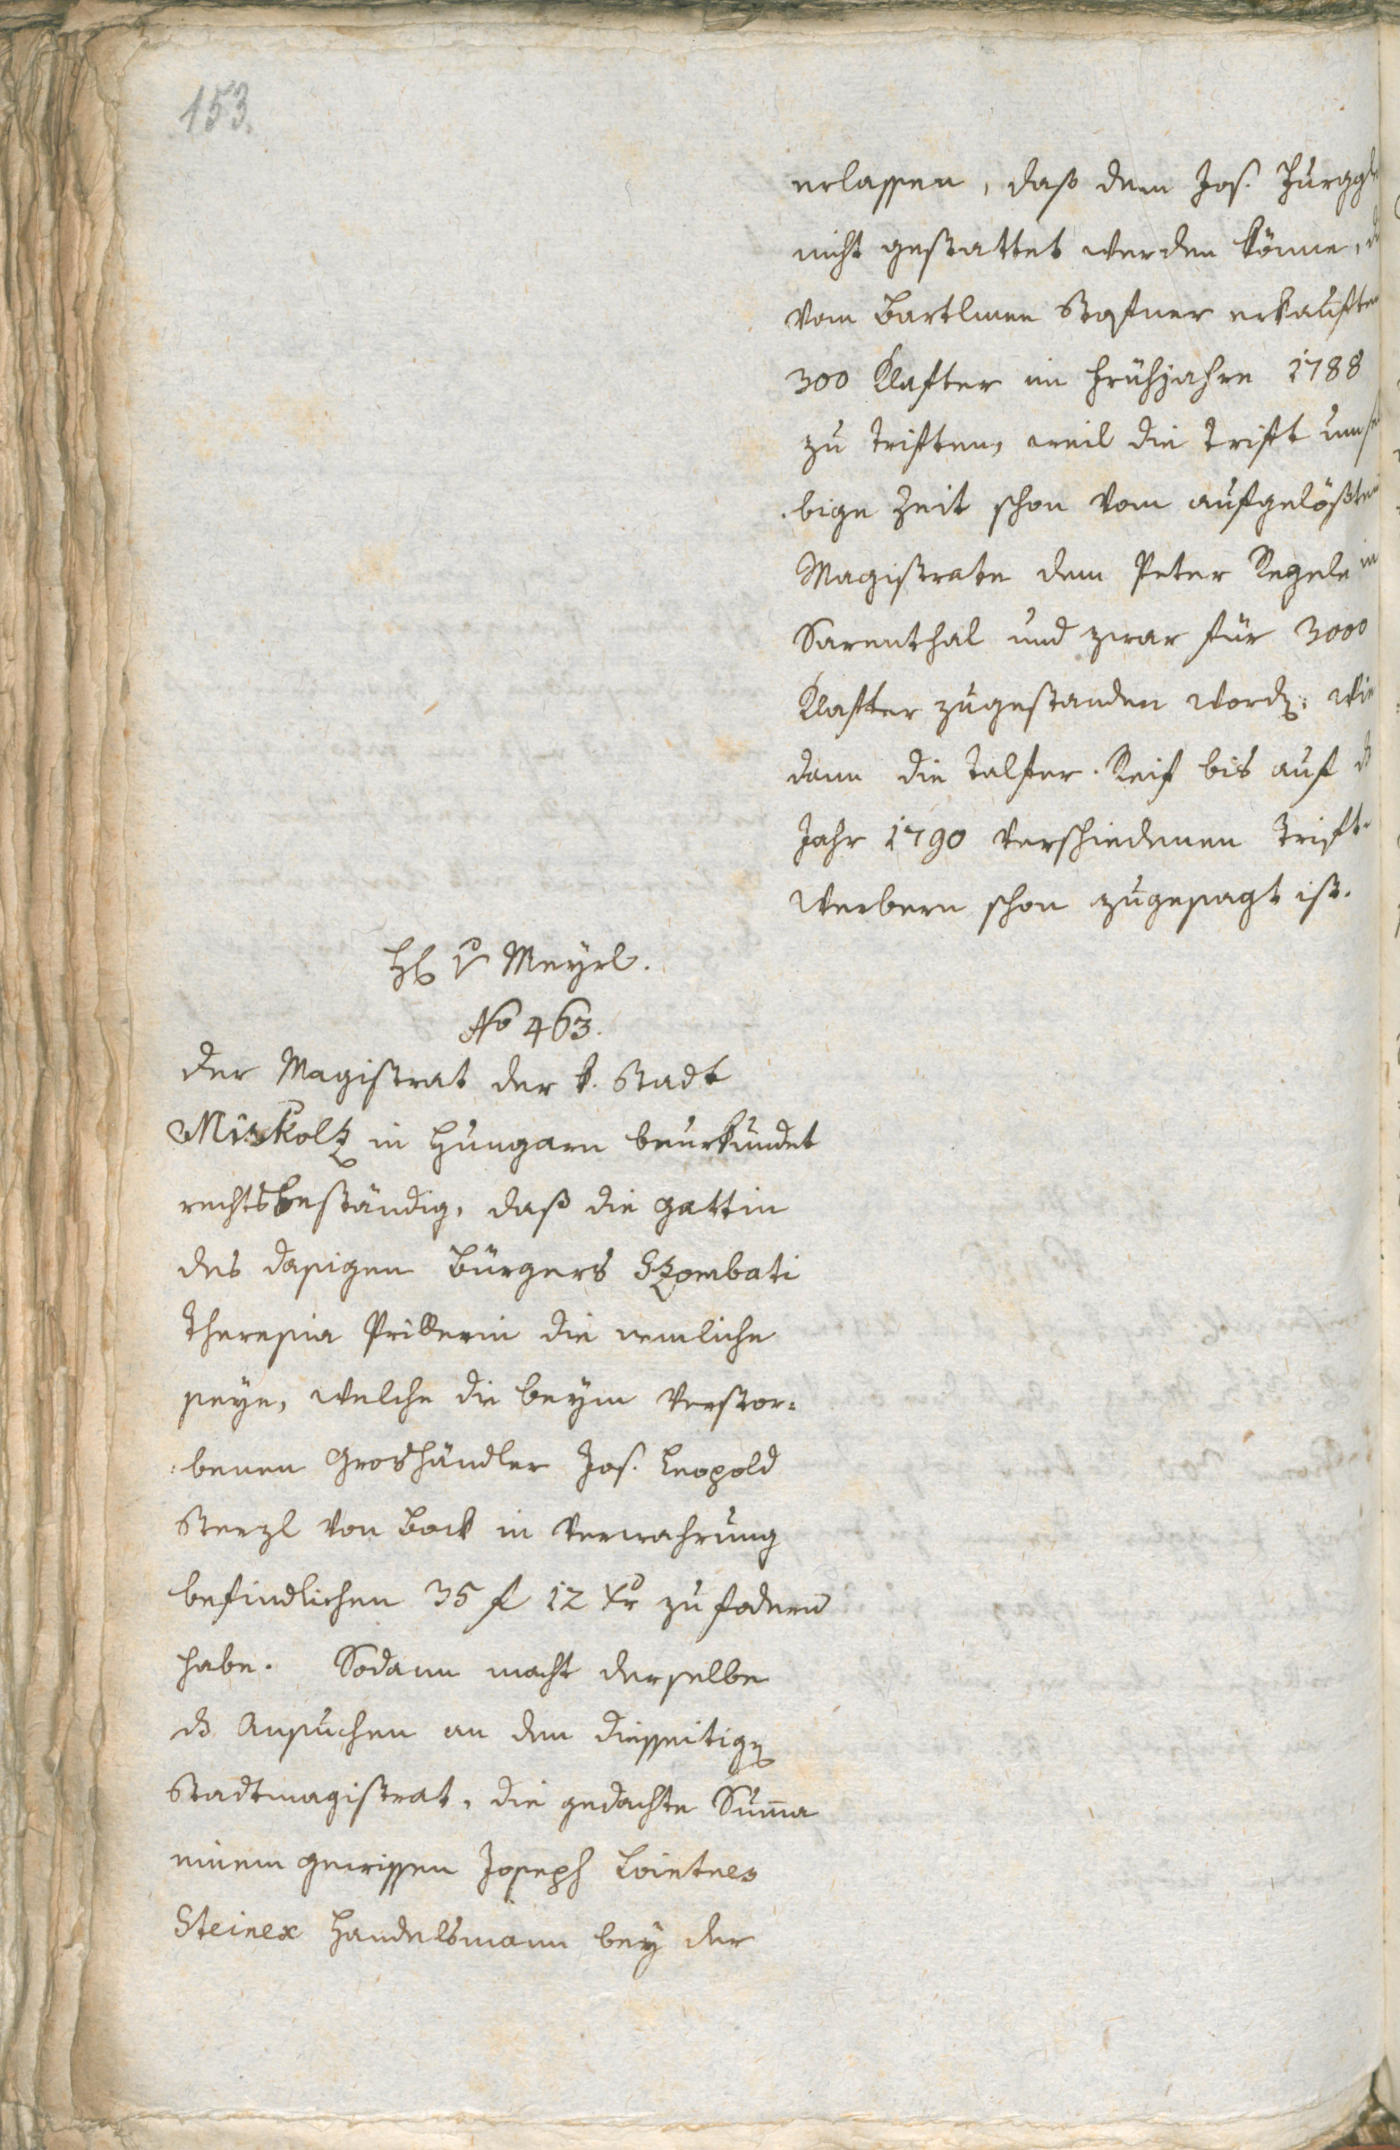 153.
erlassen, daß dem Jos. Zurggl
nicht gestattet werden könne, d
vom Bartlmee Stofner erkauften
300 Klafter im Frühjahre 1788
zu triften, weil die Trift um sel
bige Zeit schon vom aufgelößten
Magistrate dem Peter Regele in
Sarenthal und zwar für 3000
Klafter zugestanden word; wie
dann die Talfer-Reif bis auf ds
Jahr 1790 verschiedenen Trift-
werbern schon zugesagt ist.
H v Meÿrl.
No 463.
Der Magistrat der k. Stadt
Miskoltz in Hungarn beurkundet
rechtsbeständig, daß die Gattin
des dasigen Bürgers Szombati
Theresia Prillerin die nemliche
seye, welche die beym verstor-
benen Groshändler Jos. Leopold
Sterzl von Bock in Verwahrung
befindlichen 35 f 12 xr zu fodern
habe. Sodann macht derselbe
ds Ansuchen an den diesseitig
Stadtmagistrat, die gedachte Suma
einem gewissen Joseph Lointner
Steiner Handelsmann bey der